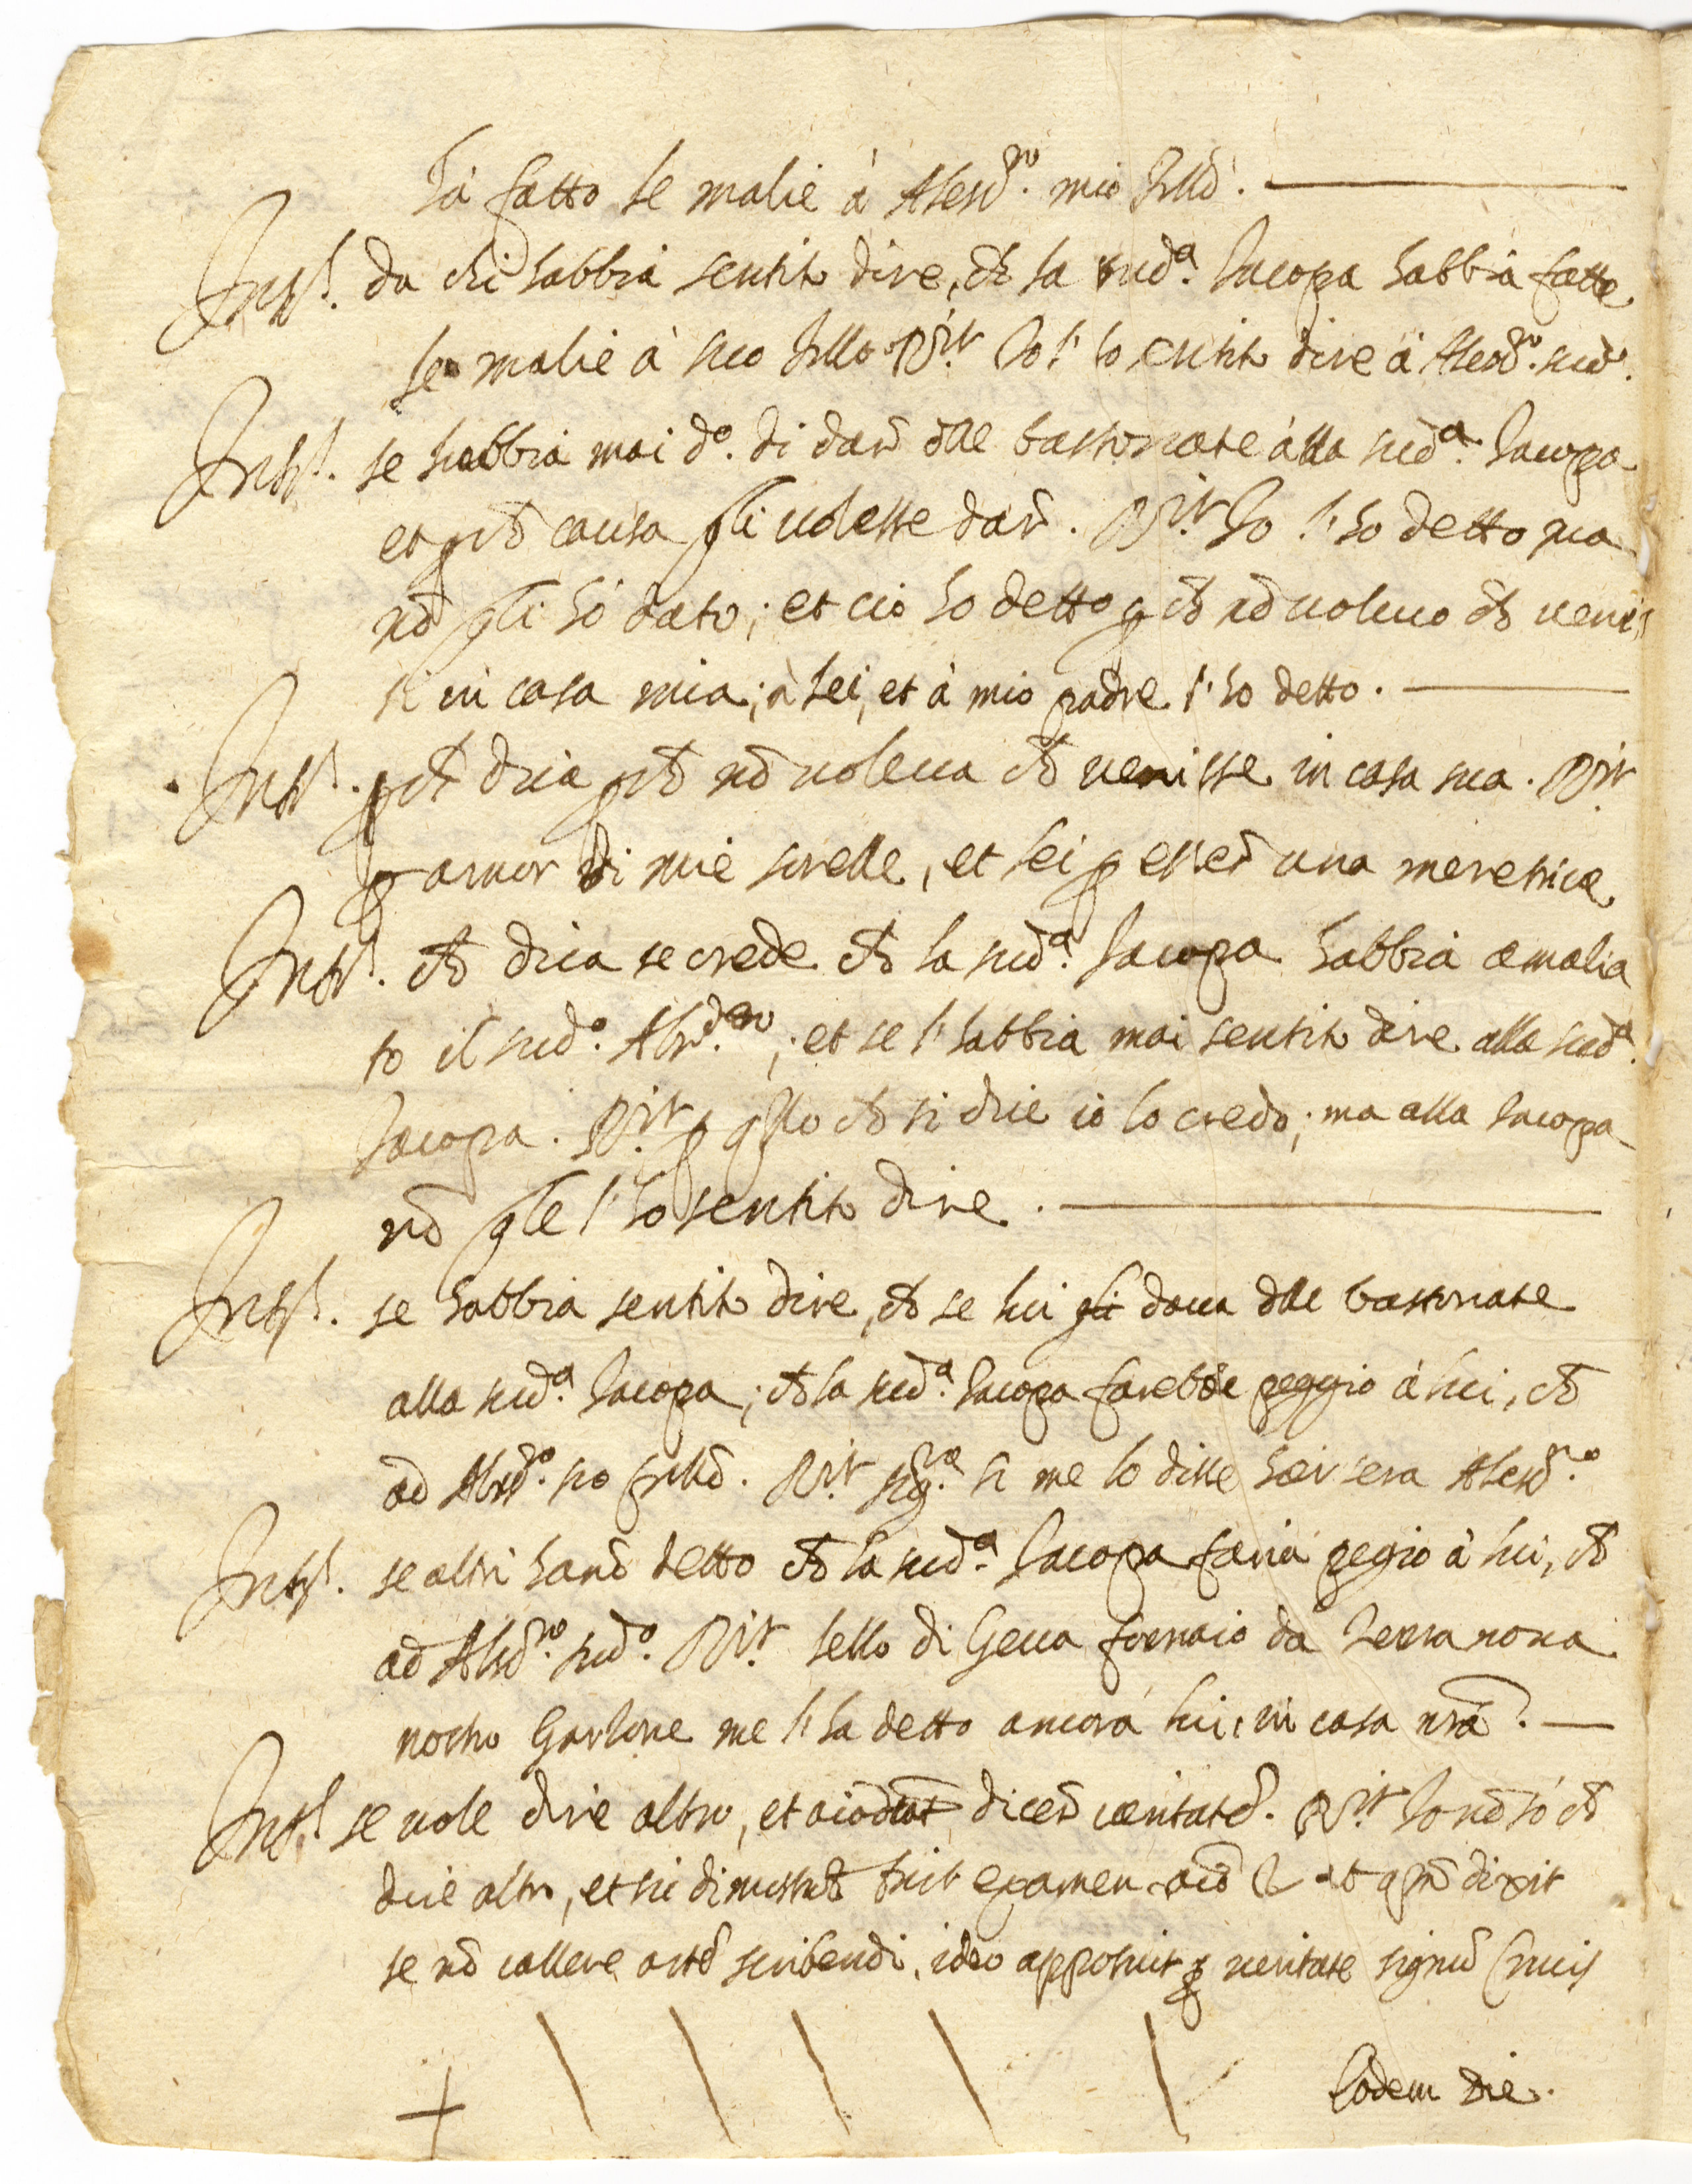 hà fatto le malie à Alesd.ro mio frllō.
Intr. da chi habbia sentito dire, ch la sud.a Jacopa habbia fatto
le malie à suo frllo. R.it Io l'ho sentito dire à Alesd.ro sud.o
Intr. se habbia mai d.o di darē dlle bastonate alla sud.a Jacopa
et p chē causa gli volesse darē. R.it Io l'ho detto ma
nō gli hò dato; et ciò ho detto p chē nō volevo chē venis
si in casa mia; à lei, et à mio padre l'ho detto.
Intr. chē dica p chē nō voleva chē venisse in casa sua. R.it
p amor di mie sorelle, et lei p esserē una meretrice
Intr. chē dica se crede chē la sud.a Jacopa habbia amalia
to il sud.o Alesd.ro; et se l'habbia mai sentito dire alla sud.a
Jacopa. R.it p qllo chē si dice io lo credo; ma alla Jacopa
nō gle l'ho sentito dire.
Intr. se habbia sentito dire, chē se lui gli dava dlle bastonate
alla sud.a Jacopa; chē la sud.a Jacopa farebbe peggio à lui, chē
ad Alesd.ro suo frllō. R.it sig.ra si me lo disse hier sera Alesd.ro
Intr. se altri hanō detto chē la sud.a Jacopa faria pegio à lui, chē
ad Alesd.ro sud.o R.it Lello di Geva fornaio da Terra nova
nostro Garzone me l'ha detto ancora lui, in casa nrā.
Intr. se vole dire altro, et dicerē veritatē. R.it Io nō sò chē
dire altro, et sic dimissū fuit examen et qm̄ dixit
se nō callere artē scribendi, ideo apposuit p veritate signū Crucis
+
Eodem die.